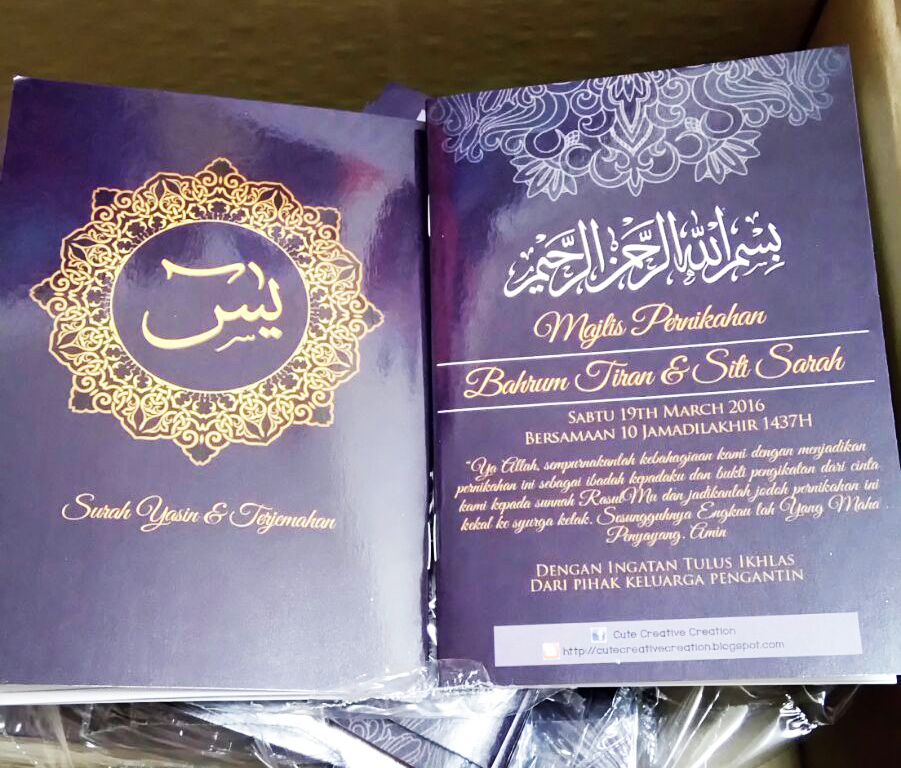 يس
Surah Yasin & Terjemahan
بِسْمِ اللهِ الرَّحْمٰنِ الرَّحِيْمِ
Majlis Pernikahan
Bahrum Tiran & Siti Sarah
SABTU 19TH MARCH 2016
BERSAMAAN 10 JAMADILAKHIR 1437H
"Ya Allah, sempurnakanlah kebahagiaan kami dengan menjadikan
pernikahan ini sebagai ibadah kepadaku dan bukti pengikatan dari cinta
kami kepada sunnah RasulMu dan jadikanlah jodoh pernikahan ini
kekal ke syurga kelak. Sesungguhnya Engkau lah Yang Maha
Penyayang. Amin
DENGAN INGATAN TULUS IKHLAS
DARI PIHAK KELUARGA PENGANTIN
Cute Creative Creation
http://cutecreativecreation.blogspot.com